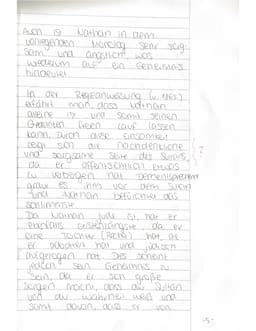 Auch ist Nathan in dem
vorliegenden Monolog sehr sorg
sam und ängstlich, was
wiederum auf ein Geheimnis
hindeutet.
In der Regieanweisung
erfährt man, dass Nathan
alleine ist und somit seinen
Gedanken freien Lauf lassen
kann. Durch diese Einsamkeit
zeigt sich die nachdenkliche
und sorgsame Seite des
da er offensichtlich etwas
zu verbergen hat. Dementsprechend
graut es ihm vor dem Sultan
und Nathan befürchtet das
schlimmste.
Da Nathan Jude ist, hat er
da er
eine Tochter (Recha) hat, die
er adoptiert hat und jüdisch
aufgezogen hat. Dies scheint
jedoch sein Geheimnis zu
sein, da er sich große
Sorgen macht, dass der Sultan
die Wahrheit weiß und
somit davon, dass er von
- 5 -